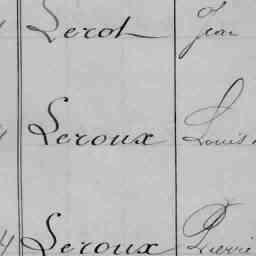 Lerol Jean
Leroux Louis
Leroux Pierre